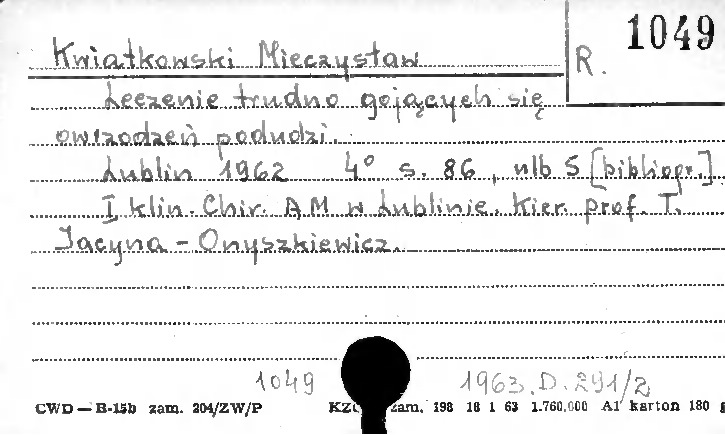 1049
R.
Kwiatkowski Mieczysław
Leczenie trudno gojących się
owrzodzeń podudzi.
Lublin 1962 4° s. 86, nlb 5 [bibliogr.]
I klin. Chir. AM w Lublinie. Kier. prof. T.
Jacyna-Onyszkiewicz.
1049 1963.D.291/2
CWD — B-15b zam. 204/ZW/P zam. 198 18 1 63 1.760.000 A1 karton 180 g